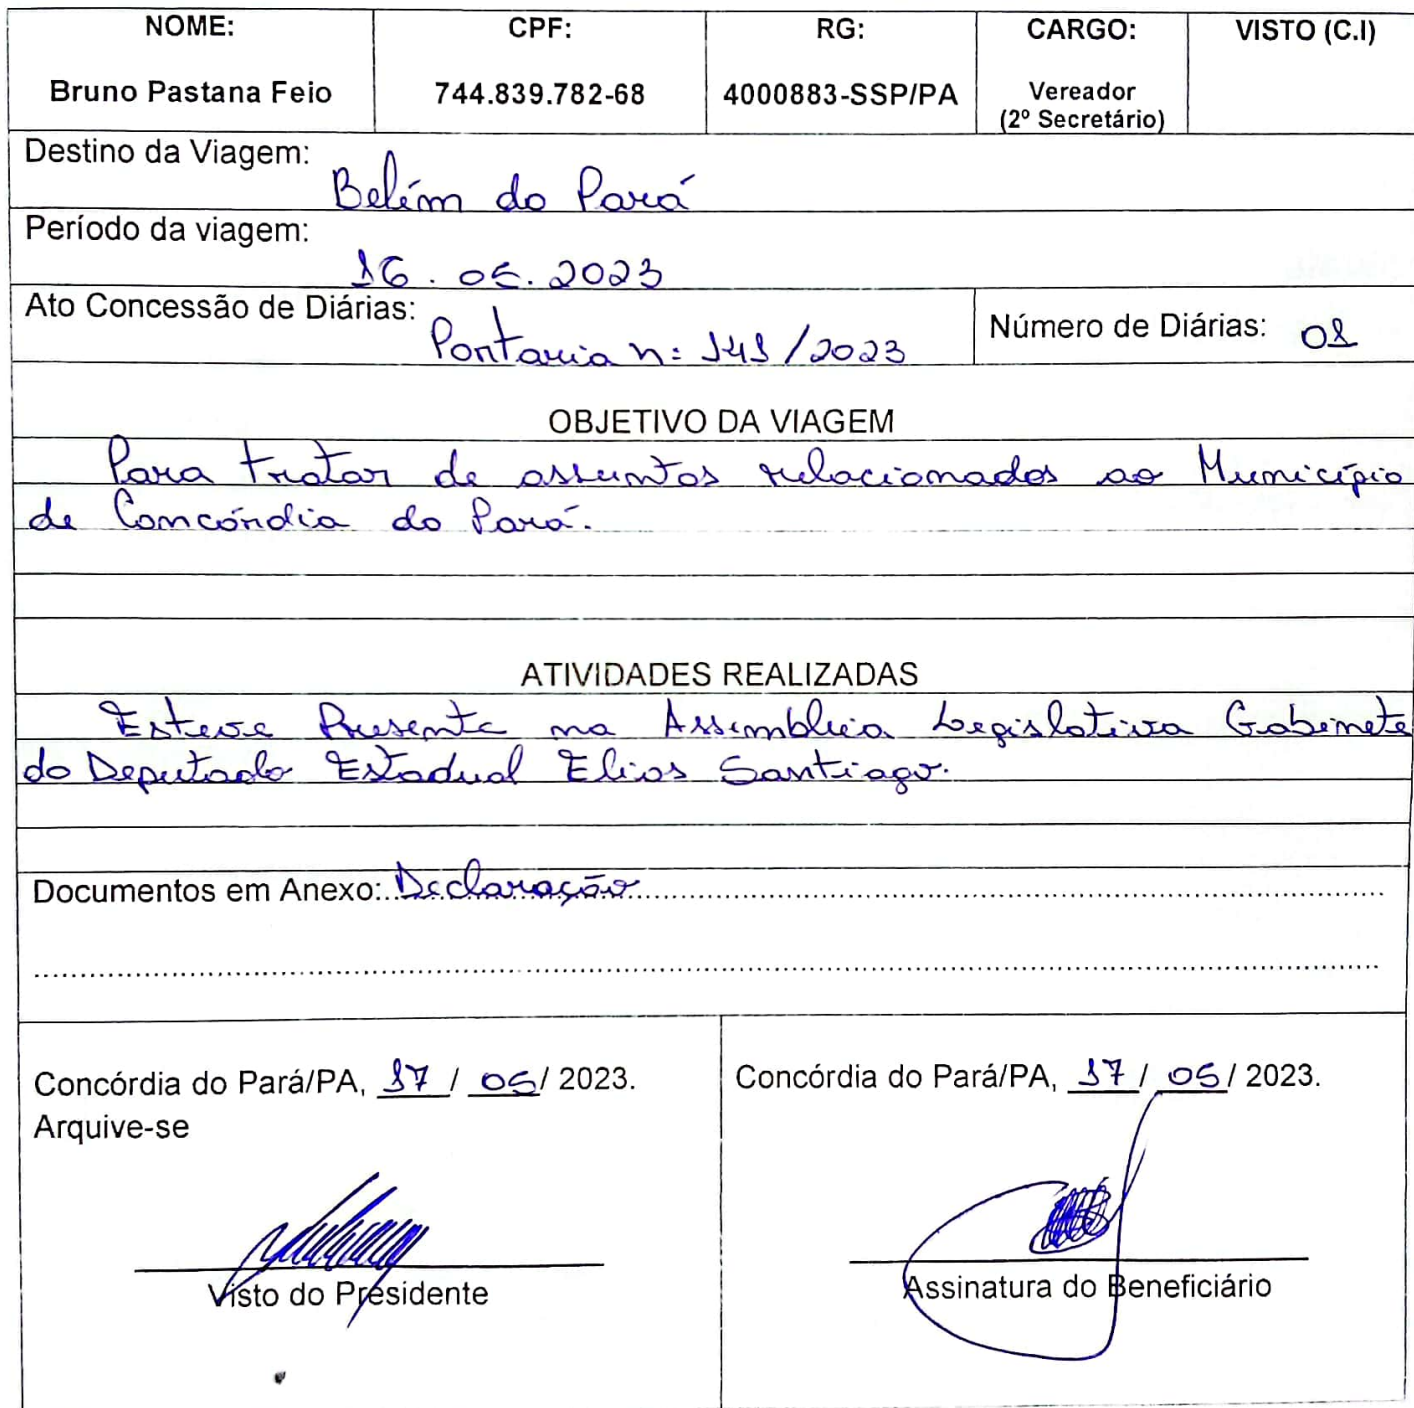 NOME: CPF: RG: CARGO: VISTO (C.I)
Bruno Pastana Feio 744.839.782-68 4000883-SSP/PA Vereador
(2º Secretário)
Destino da Viagem:
Belém do Pará
Período da viagem:
16.05.2023
Ato Concessão de Diárias:
Portaria n: 141/2023
Número de Diárias: 01
OBJETIVO DA VIAGEM
Para tratar de assuntos relacionados ao Município
de Concórdia do Pará.
ATIVIDADES REALIZADAS
Esteve Presente na Assembleia Legislativa Gabinete
do Deputado Estadual Elias Santiago.
Documentos em Anexo: Declaração
Concórdia do Pará/PA, 17 / 05 / 2023.
Arquive-se
Visto do Presidente
Concórdia do Pará/PA, 17 / 05 / 2023.
Assinatura do Beneficiário